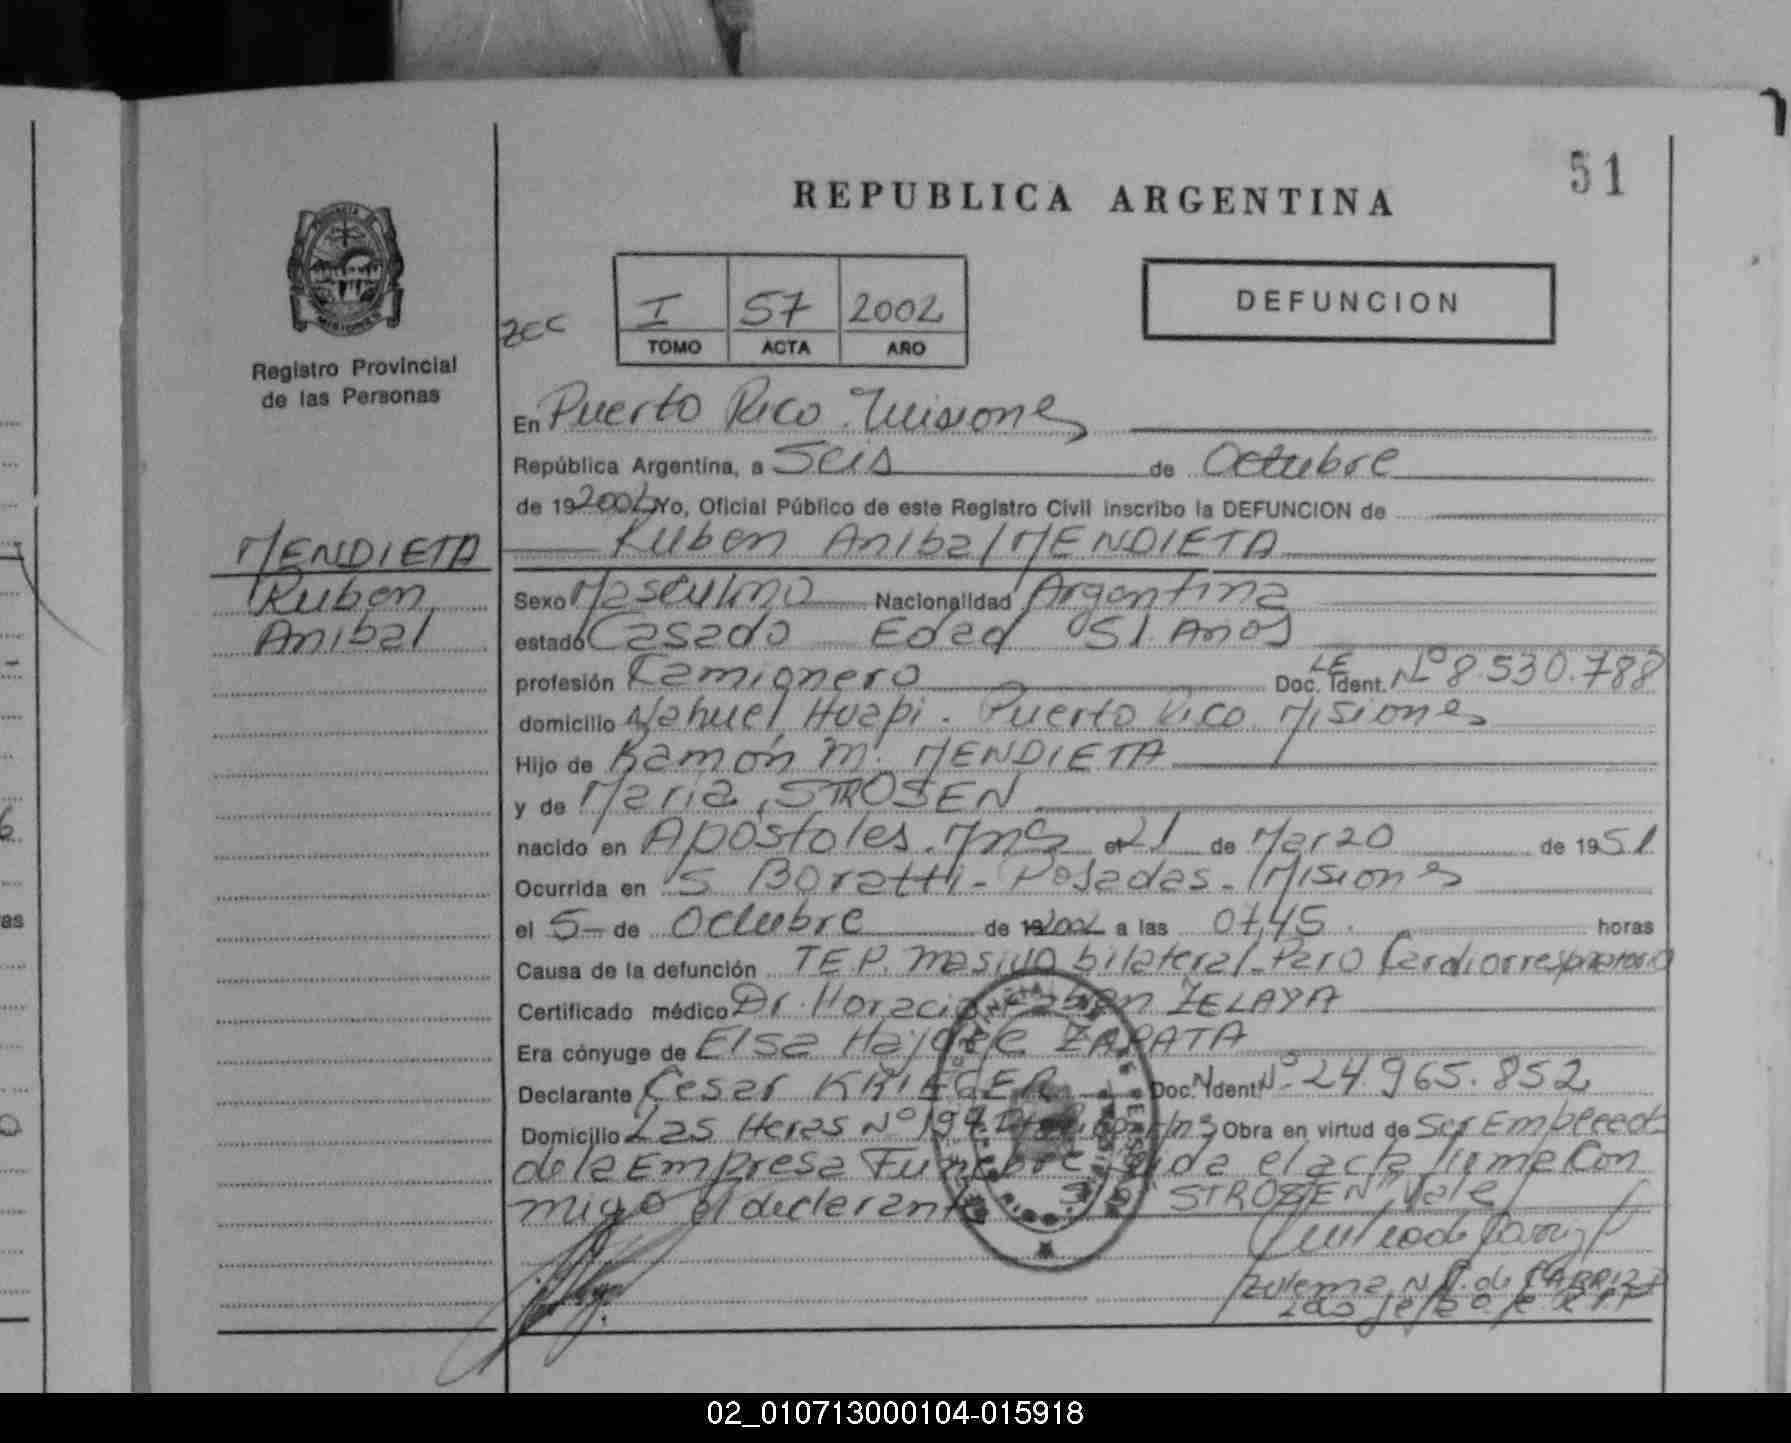 51
REPUBLICA ARGENTINA
I 57 2002
TOMO ACTA AÑO
DEFUNCION
Registro Provincial
de las Personas
En Puerto Rico. Misiones
República Argentina, a Seis de Octubre
de 192002 Yo, Oficial Público de este Registro Civil inscribo la DEFUNCION de
MENDIETA
Ruben Anibal MENDIETA
Ruben
Anibal
Sexo Masculino Nacionalidad Argentina
estado Casado Edad 51 Años
profesión Camionero Doc. LE Ident. Nº 8.530.788
domicilio Nahuel Huapi. Puerto Rico Misiones
Hijo de Ramón M. MENDIETA
y de Maria, STROSEN
nacido en Apóstoles. Mnes el 21 de Marzo de 1951
Ocurrida en S. Boratti - Posadas - Misiones
el 5 - de Octubre de 192002 a las 07,45 horas
Causa de la defunción TEP. masivo bilateral - Paro Cardiorrespiratorio
Certificado médico Dr. Horacio Fabian ZELAYA
Era cónyuge de Elsa ZAPATA
Declarante Cesar KRIEGER Doc. Ident. Nº 24.965.852
Domicilio Las Heras Nº Obra en virtud de Ser Empleado
de la Empresa Funebre Leida el acta firma Con
migo el declarante "STROSEN", Vale
Zulema N. de
02_010713000104-015918